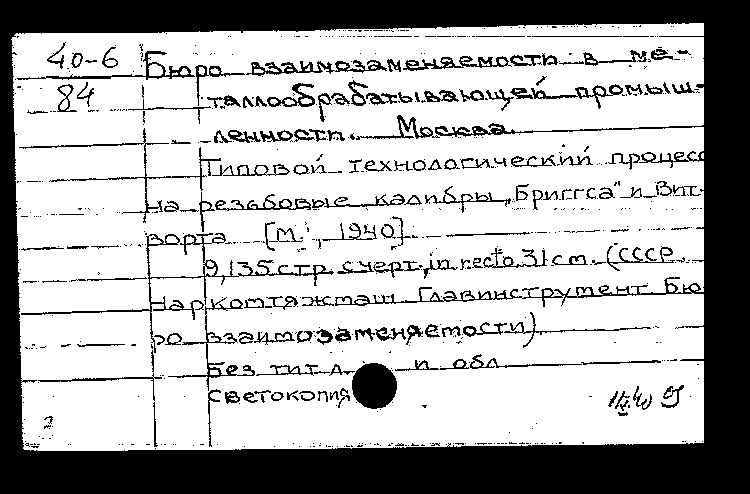 40-6 Бюро взаимозаменяемости в ме-
84 таллообрабатывающей промыш-
ленности. Москва.
Типовой технологический процесс
на резьбовые калибры „Бриггса" и Вит-
ворта [М., 1940].
9,135 стр. с черт., in recto. 31 cm. (СССР.
Наркомтяжмаш Главинструмент Бю-
ро взаимозаменяемости)
Без тит. л. и обл.
светокопия
2